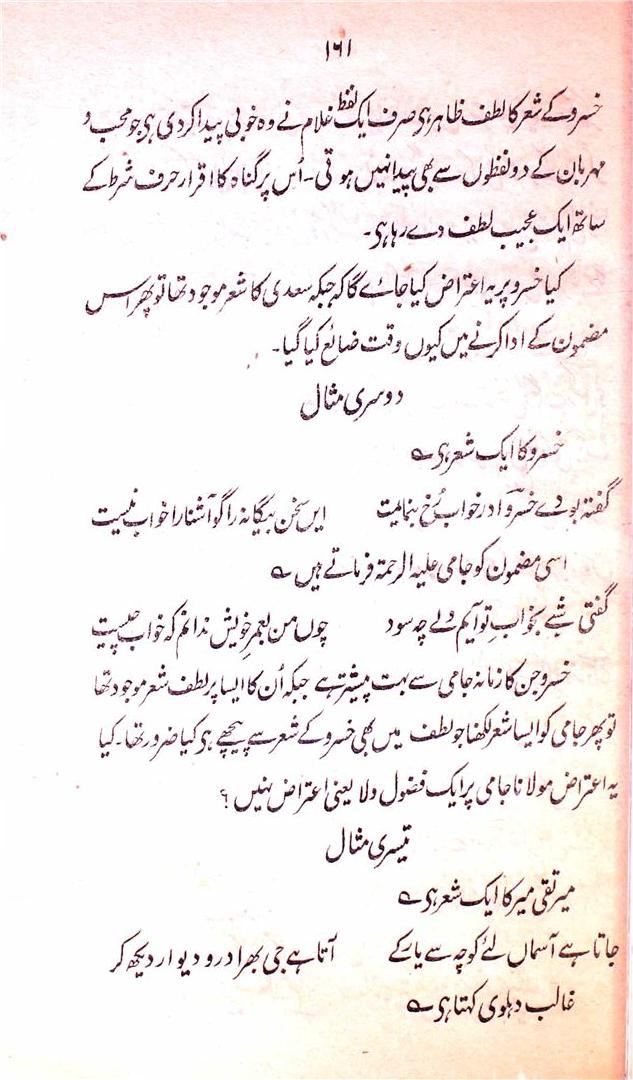 ۱۶۱
خسرو کے شعر کا لطف ظاہر ہی صرف ایک لفظ غلام نے وہ خوبی پیدا کردی ہی جو محب و
مہربان کے دو لفظوں سے بھی پیدا نہیں ہوتی۔ اُس پر گناہ کا اقرار حرف شرط کے
ساتھ ایک عجیب لطف دے رہا ہی۔
کیا خسرو پر یہ اعتراض کیا جائے گا کہ جبکہ سعدی کا شعر موجود تھا تو پھر اس
مضمون کے ادا کرنے میں کیوں وقت ضائع کیا گیا۔
دوسری مثال
خسرو کا ایک شعر ہی ؎
گفتہ بودے خسروا در خواب رُخ بنمایمت ایں سخن بیگانہ را گو آشنا را خواب نیست
اسی مضمون کو جامی علیہ الرحمۃ فرماتے ہیں ؎
گفتی شبے بخوابِ تو آیم ولے چہ سود چوں من بعمرِ خویش ندانم کہ خواب چیست
خسرو جن کا زمانہ جامی سے بہت پیشتر ہے جبکہ اُن کا ایسا پر لطف شعر موجود تھا
تو پھر جامی کو ایسا شعر لکھنا جو لطف میں بھی خسرو کے شعر سے پیچھے ہی کیا ضرور تھا۔ کیا
یہ اعتراض مولانا جامی پر ایک فضول و لا یعنی اعتراض نہیں ؟
تیسری مثال
میر تقی میر کا ایک شعر ہی ؎
جاتا ہے آسماں لئے کوچہ سے یار کے آتا ہے جی بھرا در و دیوار دیکھ کر
غالب دہلوی کہتا ہی ؎